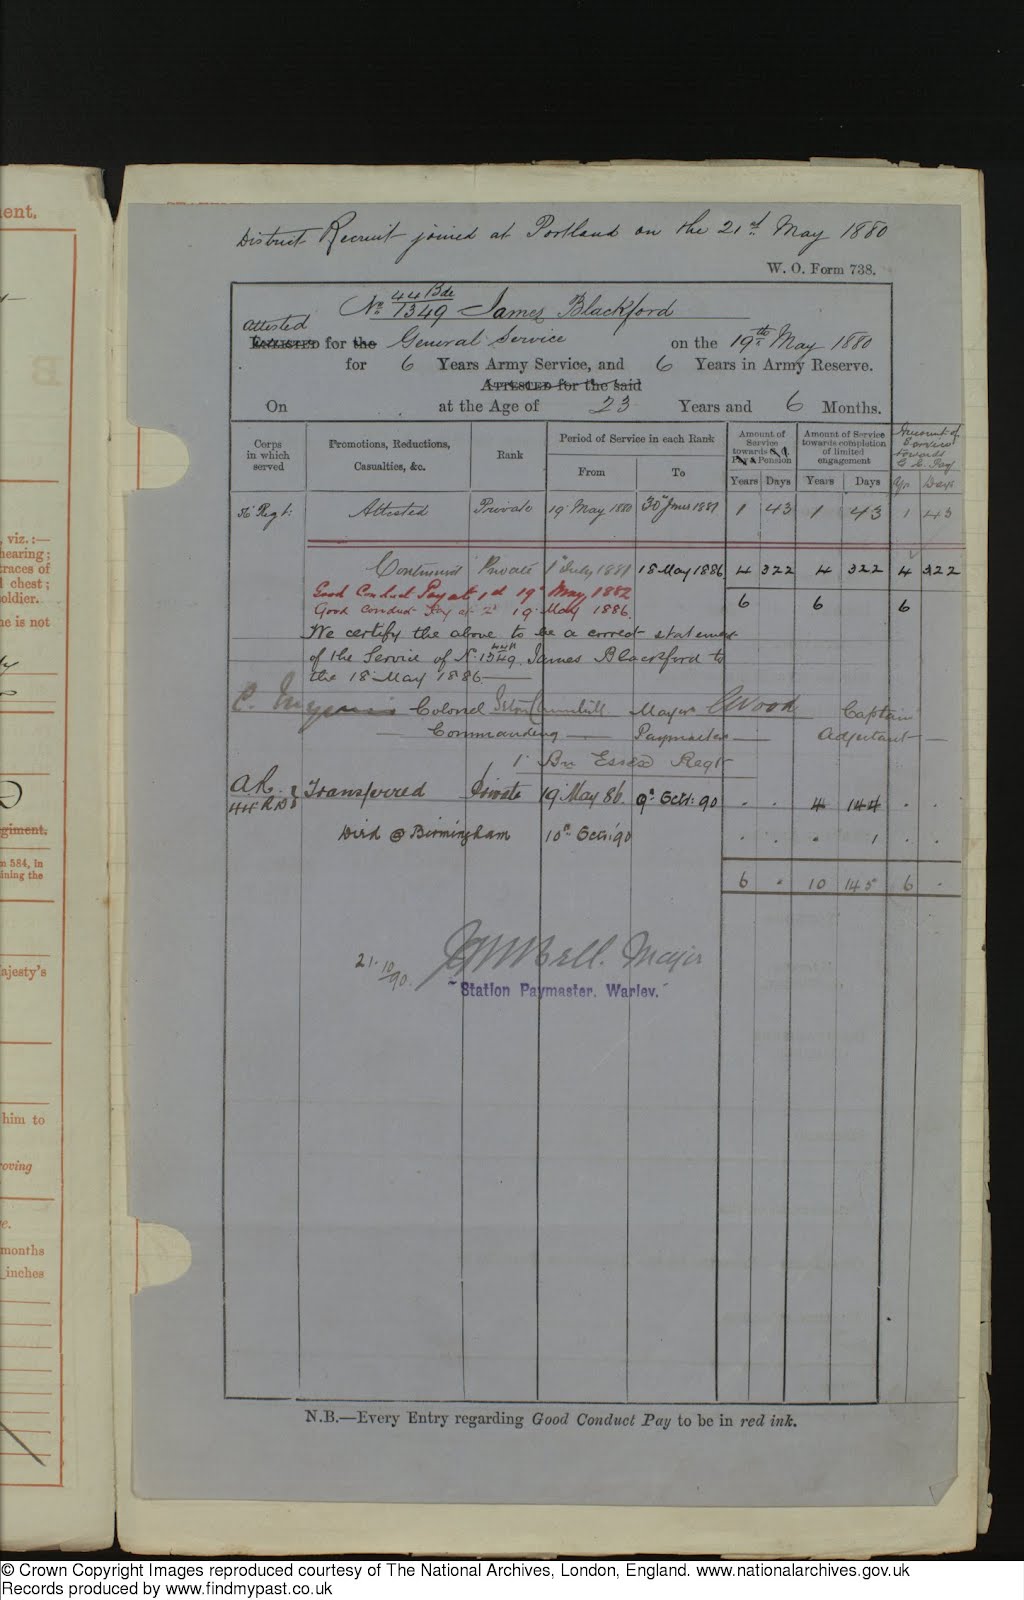 ent.
District Recruit joined at Portland on the 21st May 1880
W. O. Form 738.
No 44 Bde / 1349 James Blackford
Attested
ENLISTED for the General Service on the 19th May 1880
for 6 Years Army Service, and 6 Years in Army Reserve.
ATTESTED for the said
On at the Age of 23 Years and 6 Months.
Corps in which served
Promotions, Reductions, Casualties, &c.
Rank
Period of Service in each Rank
From To
Amount of Service towards Pension
Years Days
Amount of Service towards completion of limited engagement
Years Days
Amount of Service towards G. C. Pay
Yrs Days
56 Regt. Attested Private 19 May 1880 30 June 1881 1 43 1 43 1 43
Continued Private 1 July 1881 18 May 1886 4 322 4 322 4 322
Good Conduct Pay at 1d 19 May 1882
Good Conduct Pay at 2d 19 May 1886
6 6 6
We certify the above to be a correct statement
of the Service of No. 44th / 1349 James Blackford to
the 18 May 1886
Colonel Major Wood Captain
Commanding Paymaster Adjutant
1 Bn Essex Regt
A.R. 44 R.D. Transferred Private 19 May 86 9th Octr. 90 . . 4 144 . .
Died @ Birmingham 10th Octr. '90 . . . 1 . .
6 . 10 145 6 .
21.10/90. Bell. Major
Station Paymaster, Warley.
N.B.—Every Entry regarding Good Conduct Pay to be in red ink.
, viz.:—
hearing;
traces of
chest;
oldier.
he is not
giment.
m 584, in
ining the
ajesty's
him to
roving
e.
months
inches
© Crown Copyright Images reproduced courtesy of The National Archives, London, England. www.nationalarchives.gov.uk
Records produced by www.findmypast.co.uk